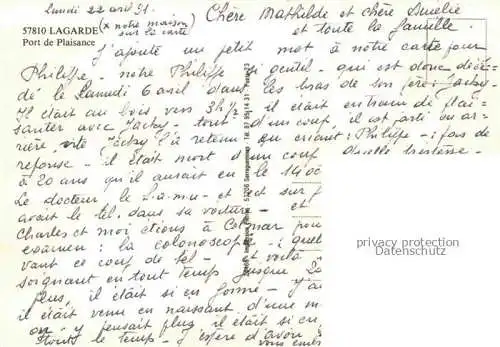 lundi 22 avril 91.
(x notre maison
sur la carte)
57810 LAGARDE
Port de Plaisance
Chère Mathilde et chère Amélie
et toute la famille.
J'ajoute un petit mot à notre carte pour
Philippe - notre Philippe si gentil - qui est donc décé-
dé le Samedi 6 avril dans les bras de son père: Jacky-
Il était au bois vers 3h½ - il était en train de plai-
santer avec Jacky - tout d'un coup, il est parti en ar-
rière, Jacky l'a retenu en criant: Philippe -: pas de
réponse - il était mort d'un coup quelle tristesse -
à 20 ans qu'il aurait en le 14 oc
Le docteur le S.a.m.u - et
avait le tél. dans sa voiture - et
Charles et moi étions à Colmar pour
examen: la colonoscopie: quel
vant ce coup de tél - et voilà
soignant en tout temps jusque
plus, il était si en forme - J'ai
il était venu en naissant d'une m
on y pensait plus il était si en
tout le temps - J'espère d'avoir
vous embr
privacy protection
by Oldthing